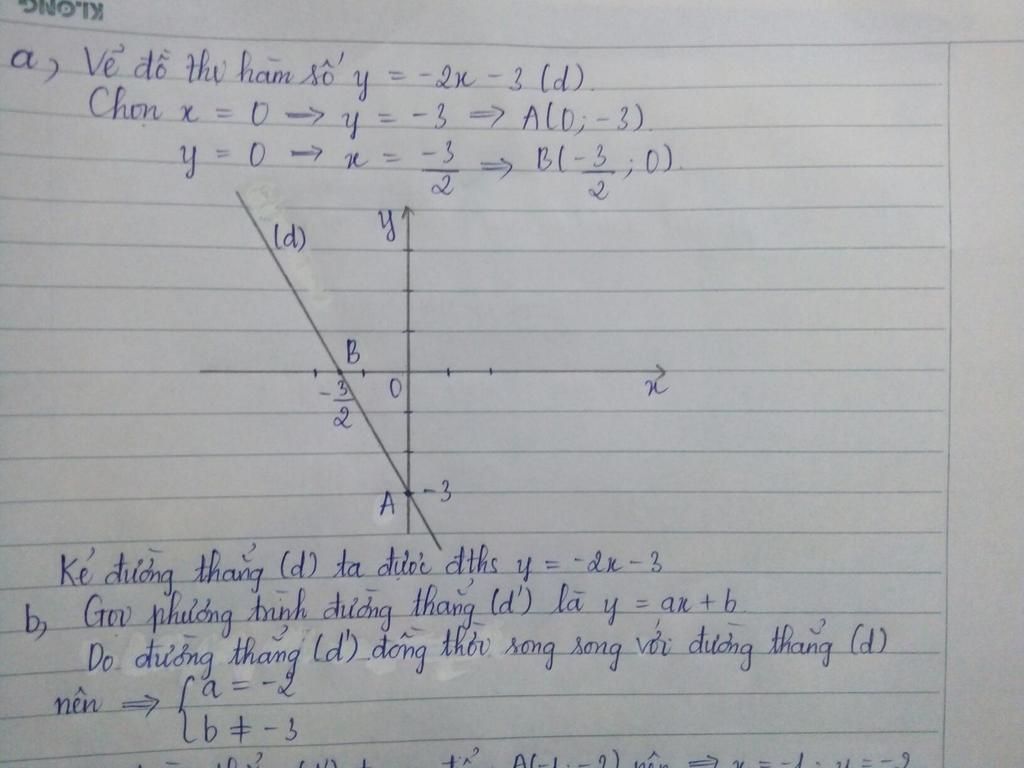 KLONG
a, Vẽ đồ thị hàm số y = -2x - 3 (d).
Chọn x = 0 → y = -3 ⇒ A(0; -3)
y = 0 → x = -3/2 ⇒ B(-3/2; 0).
y
(d)
B
-3/2
O
x
A
-3
Kẻ đường thẳng (d) ta được đths y = -2x - 3
b, Gọi phương trình đường thẳng (d') là y = ax + b
Do đường thẳng (d') đồng thời song song với đường thẳng (d)
nên ⇒ { a = -2
b ≠ -3
A(-1; -2) nên ⇒ x = -1; y = -2